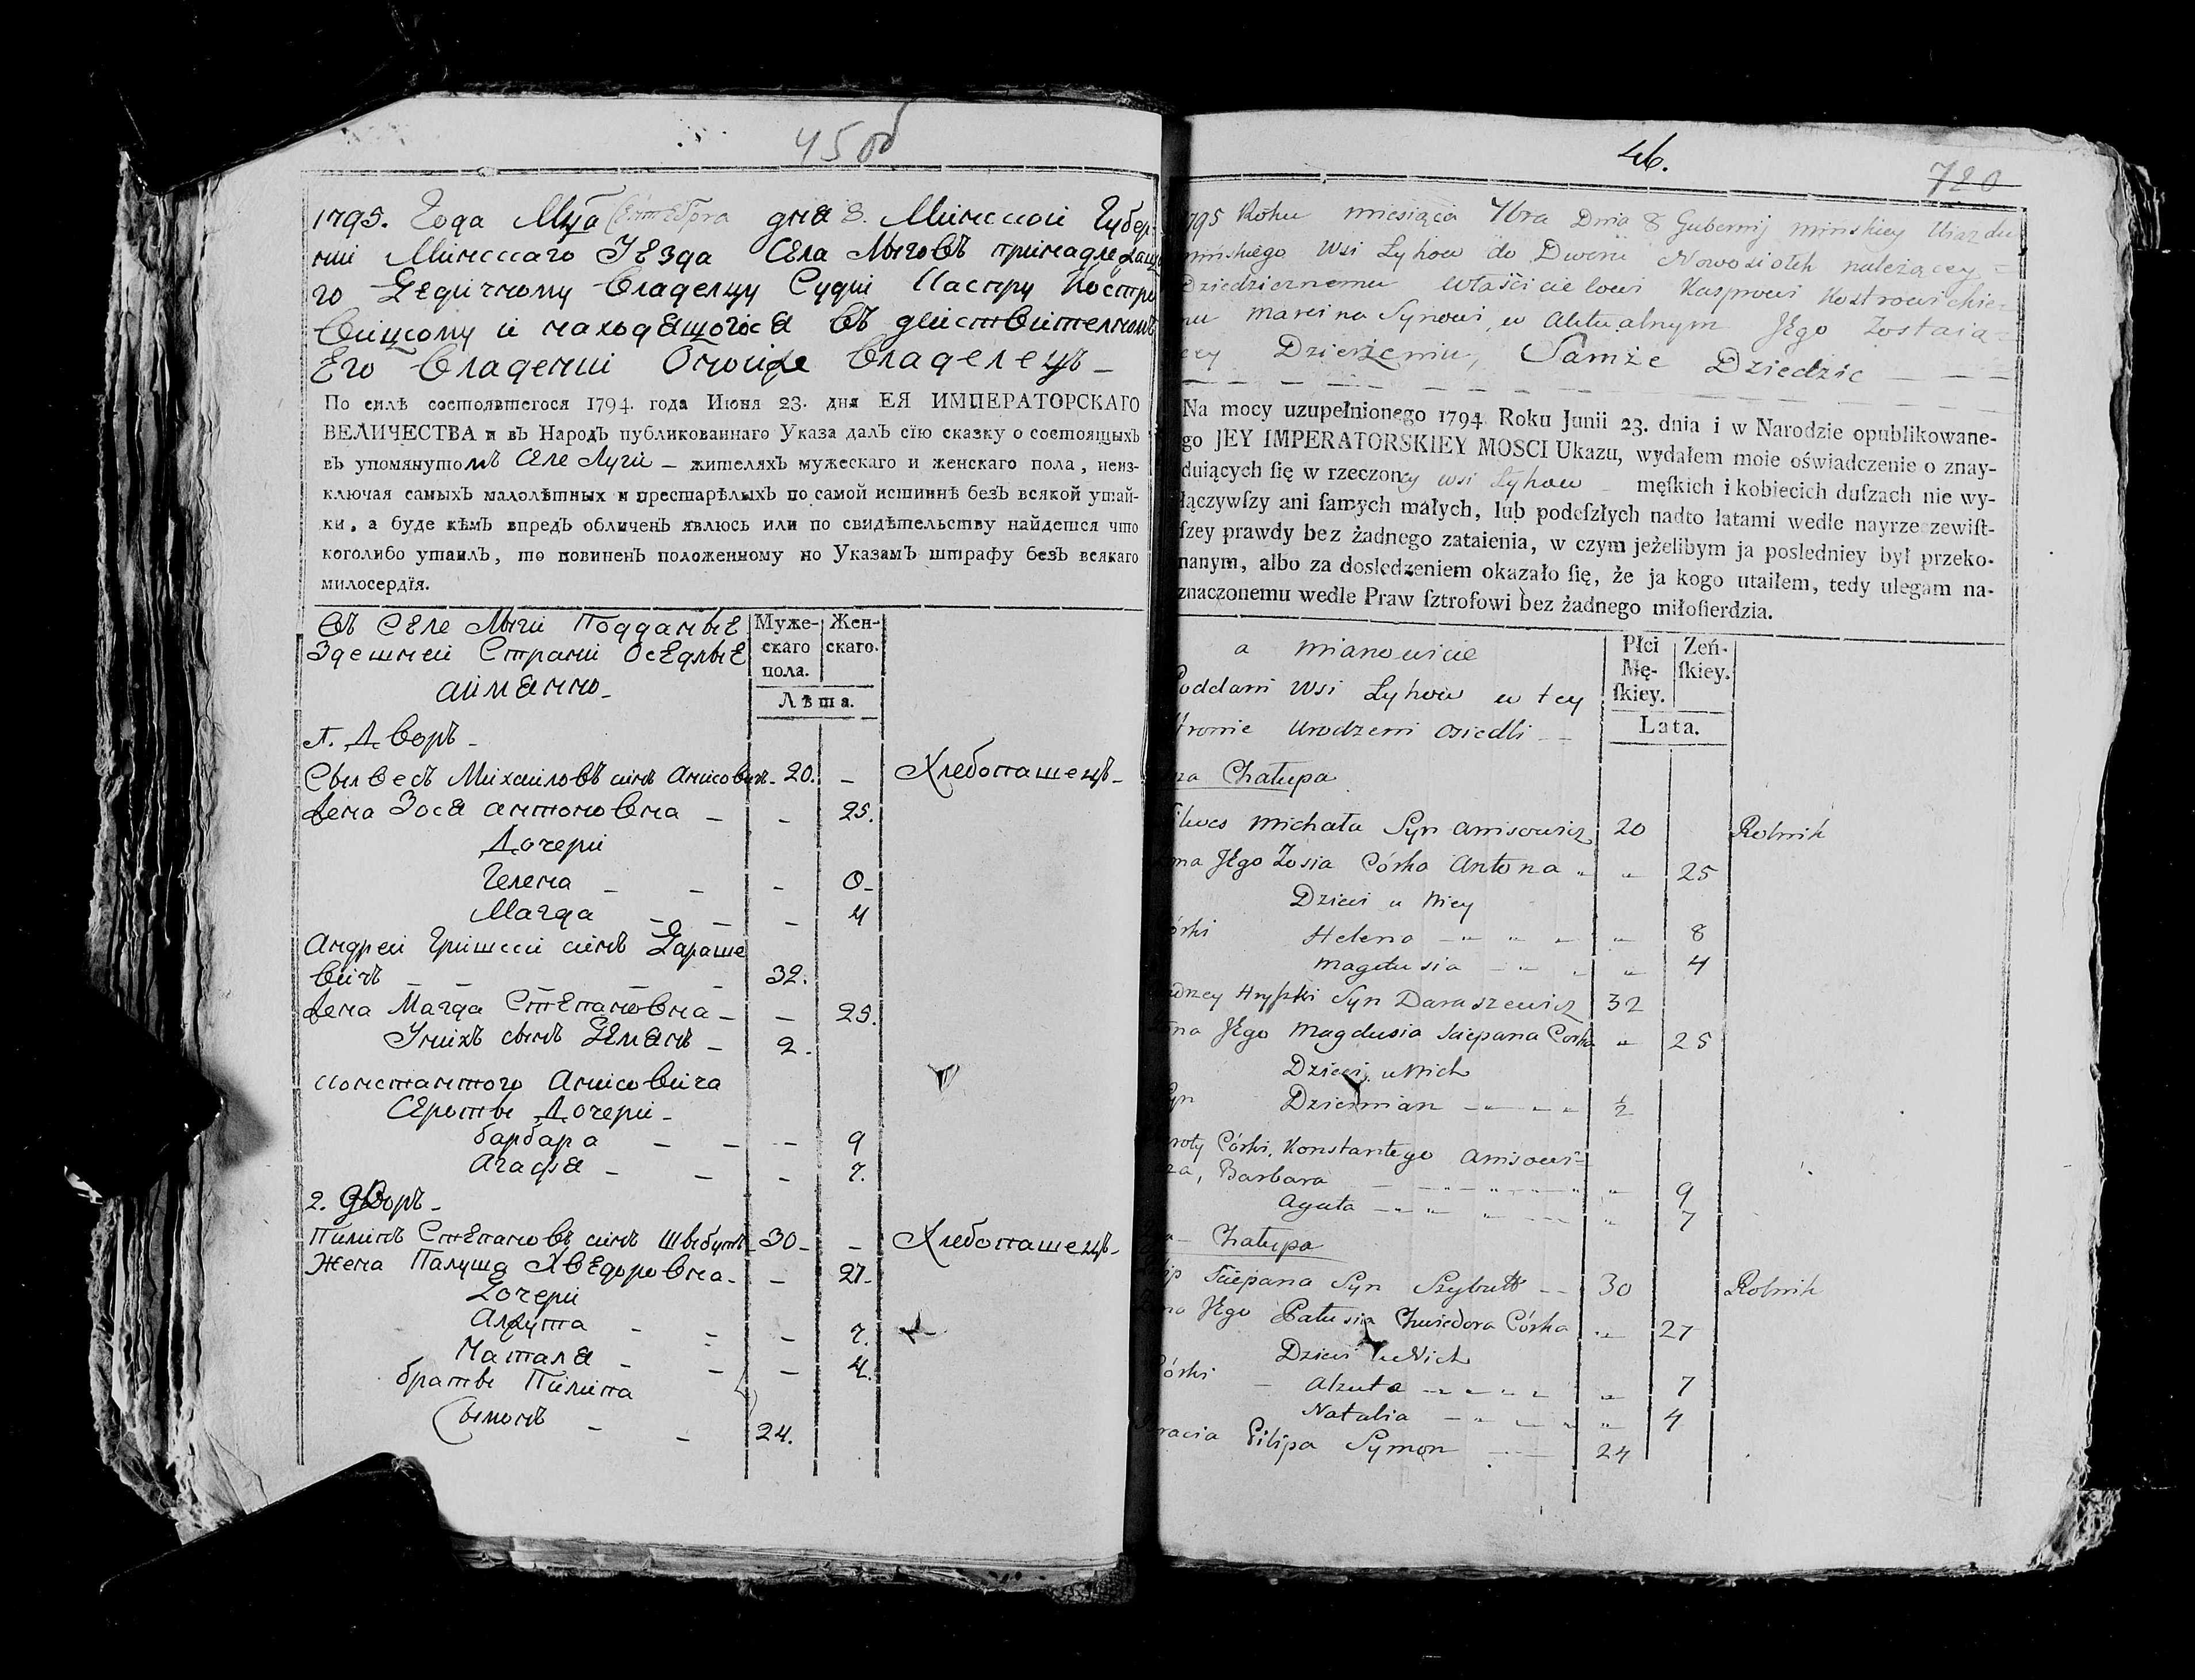 45 об
1795. Года Мца Сентебра дня 8. Минской Губер-
нии Минскаго Уезда Села Лыговъ принадлежащо
го Дедичному Владелцу Судии Каспру Костро
вицкому и находящогося въ действителномъ
Его Владении Оной же Владелецъ —
По силѣ состоявшегося 1794. года Июня 23. дня ЕЯ ИМПЕРАТОРСКАГО
ВЕЛИЧЕСТВА и въ Народъ публикованнаго Указа далъ сїю сказку о состоящыхъ
въ упомянутомъ Селе — жителяхъ мужескаго и женскаго пола, неиз-
ключая самыхъ малолѣтныхъ и престарѣлыхъ по самой истиннѣ безъ всякой утай-
ки, а буде кѣмъ впредь обличенъ явлюсь или по свидѣтельству найдется что
коголибо утаилъ, то повиненъ положенному по Указамъ штрафу безъ всякаго
милосердїя.
Въ Селе Подданые
Здешней Страни Оседлые
аймянно —
Муже-
скаго
пола.
Жен-
скаго.
Лѣта.
1. Дворъ —
Сылвесъ Михайловъ синъ Анисовичъ — 20. — Хлебопашецъ —
Жена Зося Антоновна — — 25.
Дочери
Гелена — — — 8 —
Магда — — — 4
Андрей Гришки синъ Дараше
вичъ — — — — 32.
Жена Магда Степановна — — 25.
У нихъ сынъ Демянъ — 2.
Константого Анисовича
Сероты Дочери —
Барбара — — — 9
Агафя — — — 7.
2. Дворъ —
Пилипъ Степановъ синъ — 30 — — Хлебопашецъ —
Жена Палуша Хведоровна — — 27 —
Дочери
Алжута — — — 7.
Наталя — — — 4.
братъ Пилипа
Сымонъ — — 24.
46.
720
1795 Roku miesiąca 7bra Dnia 8 Gubernij minskiey Uiazdu
minskiego Wsi Łyhow do Dworu Nowosiołek należącey =
Dziedzicznemu właścicielowi Kasprowi Kostrowickie=
mu Marcina Synowi, w Aktualnym JEgo Zostaia=
cey Dzierżeniu, Samże Dziedzic — — —
Na mocy uzupełnionego 1794 Roku Junii 23. dnia i w Narodzie opublikowane-
go JEY IMPERATORSKIEY MOSCI Ukazu, wydałem moie oświadczenie o znay-
duiących ſię w rzeczoney wsi Łyhow — męſkich i kobiecich duſzach nie wy-
łączywſzy ani ſamych małych, lub podeſzłych nadto latami wedle nayrzeczewiſt-
ſzey prawdy bez żadnego zataienia, w czym jeżelibym ja posledniey był przeko-
nanym, albo za dosledzeniem okazało ſię, że ja kogo utaiłem, tedy ulegam na-
znaczonemu wedle Praw ſztrofowi bez żadnego miłoſierdzia.
a mianowicie
Poddani Wsi Łyhow w tey
stronie Urodzeni osiedli —
Płci
Mę-
ſkiey.
Zeń-
ſkiey.
Lata.
Chałupa
Silwes Michała Syn Anisowicz 20 Rolnik
Zona JEgo Zosia Córka Antona " " 25
Dzieci u Niey
Córki Helena — " " " " 8
Magdusia — " " " 4
Andrzey Hryszki Syn Daraszewicz 32
Zona JEgo Magdusia Sciepana Corka " 25
Dzieci u Nich
Syn Dziemian — " — " — " ½
Siroty Córki, Konstantego Anisowi=
cza, Barbara — " — " " " 9
Agata — " " " — " 7
Chałupa
Filip Sciepana Syn Szybutt — — 30 Rolnik
Zona JEgo Pałusia Chwiedora Córka " 27
Dzieci u Nich
Córki — Alzuta — " — " — " 7
Natalia — " — " " 4
Bracia Filipa Symon — — 24